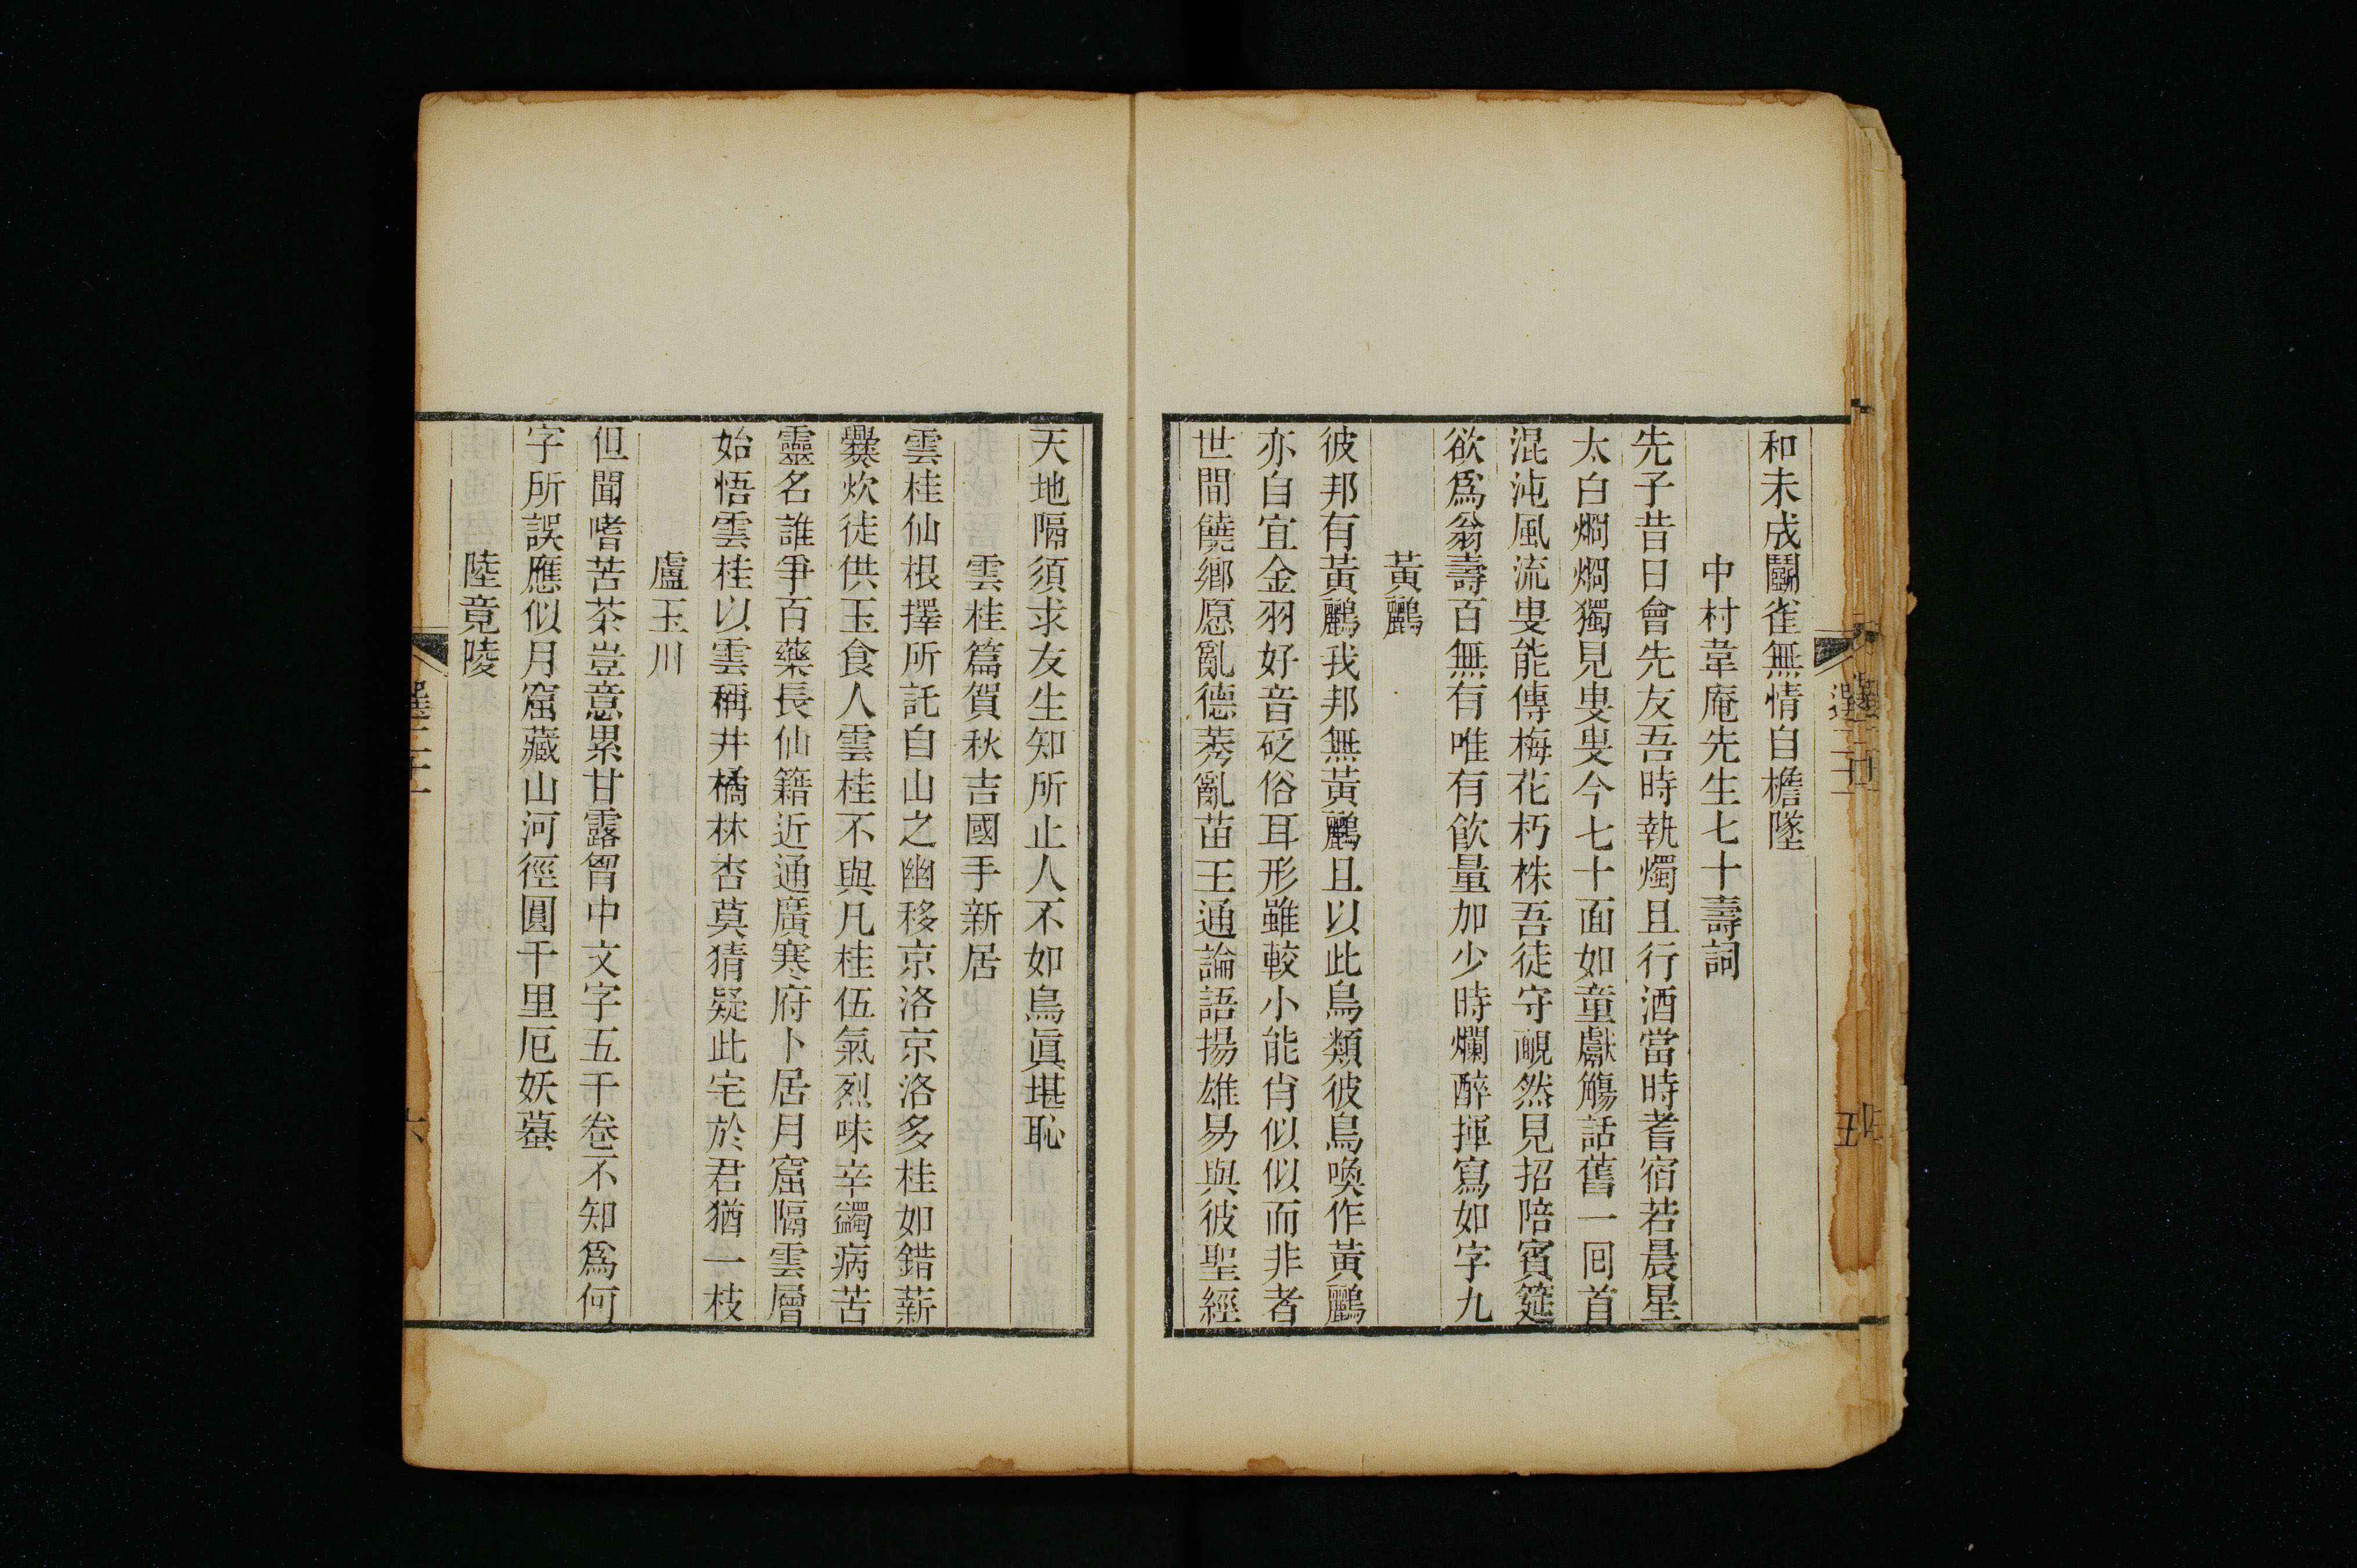 和未成鬭雀無情自檐墜
中村韋庵先生七十壽詞
先子昔日會先友吾時執燭且行酒當時耆宿若晨星
太白烱烱獨見叟叟今七十面如童獻觴話舊一囘首
混沌風流叟能傳梅花朽株吾徒守靦然見招陪賓筵
欲爲翁壽百無有唯有飮量加少時爛醉揮寫如字九
黃鸝
彼邦有黃鸝我邦無黃鸝且以此鳥類彼鳥喚作黃鸝
亦白宜金羽好音砭俗耳形雖較小能肖似似而非者
世間饒鄕愿亂德莠亂苗王通論語揚雄易與彼聖經
天地隔須求友生知所止人不如鳥眞堪恥
雲桂篇賀秋吉國手新居
雲桂仙根擇所託自山之幽移京洛京洛多桂如錯薪
爨炊徒供玉食人雲桂不與凡桂伍氣烈味辛蠲病苦
靈名誰爭百藥長仙籍近通廣寒府卜居月窟隔雲層
始悟雲桂以雲稱井橘林杏莫猜疑此宅於君猶一枝
盧玉川
但聞嗜苦茶豈意累甘露胷中文字五千卷不知爲何
字所誤應似月窟藏山河徑圓千里厄妖蟇
陸竟陵